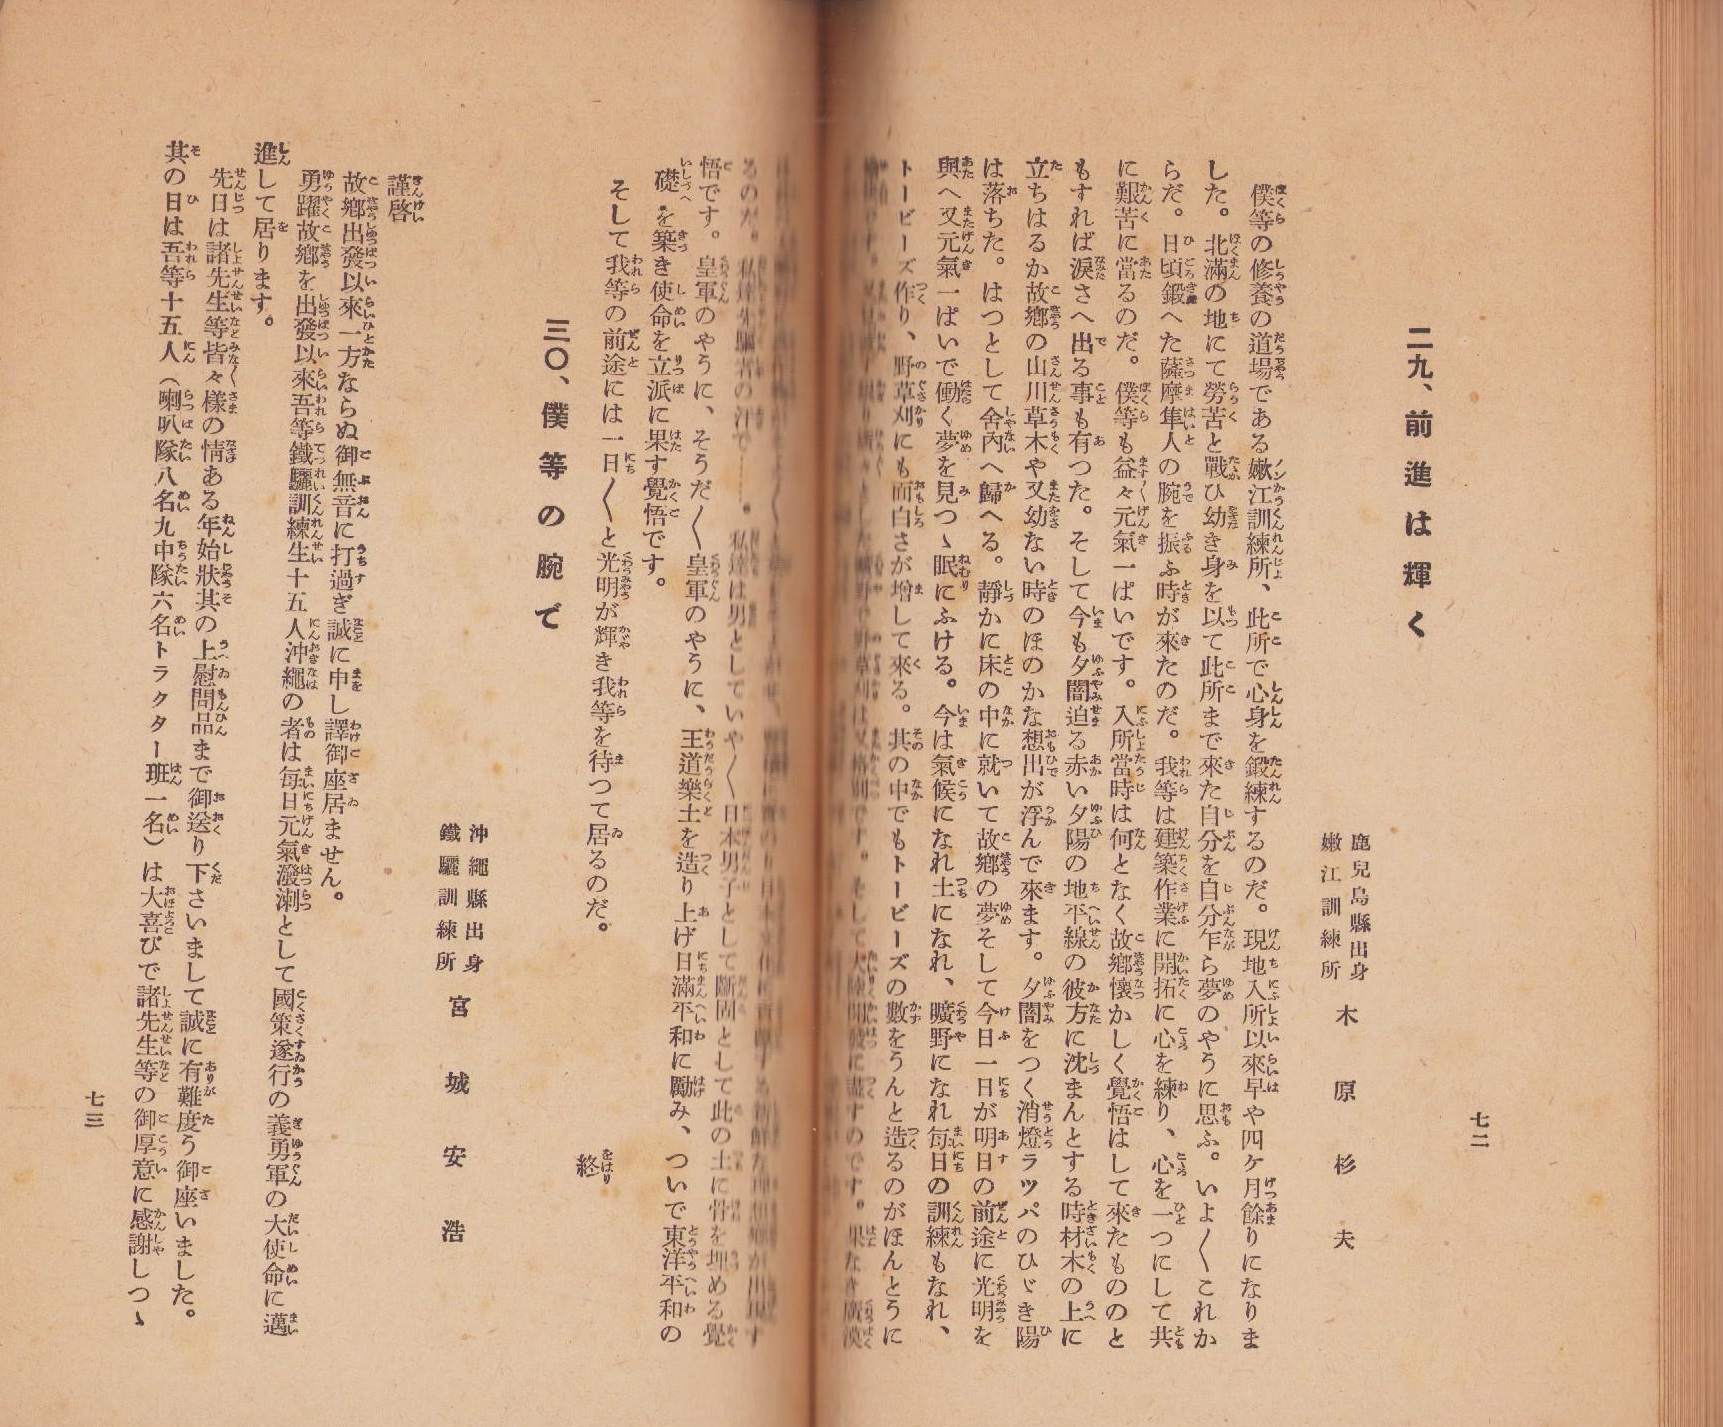 七二
二九、前進は輝く
鹿兒島縣出身
嫩江訓練所
木原杉夫
僕等の修養の道場である嫩江訓練所、此所で心身を鍛練するのだ。現地入所以來早や四ケ月餘りになりま
した。北滿の地にて勞苦と戰ひ幼き身を以て此所まで來た自分を自分乍ら夢のやうに思ふ。いよ〱これか
らだ。日頃鍛へた薩摩隼人の腕を振ふ時が來たのだ。我等は建築作業に開拓に心を練り、心を一つにして共
に艱苦に當るのだ。僕等も益々元氣一ぱいです。入所當時は何となく故鄕懷かしく覺悟はして來たもののと
もすれば淚さへ出る事も有つた。そして今も夕闇迫る赤い夕陽の地平線の彼方に沈まんとする時材木の上に
立ちはるか故鄕の山川草木や又幼ない時のほのかな想出が浮んで來ます。夕闇をつく消燈ラツパのひゞき陽
は落ちた。はつとして舍內へ歸へる。靜かに床の中に就いて故鄕の夢そして今日一日が明日の前途に光明を
與へ又元氣一ぱいで働く夢を見つゝ眠にふける。今は氣候になれ土になれ、曠野になれ每日の訓練もなれ、
トービーズ作り、野草刈にも面白さが增して來る。其の中でもトービーズの數をうんと造るのがほんとうに
野草刈は又格別です。そして大陸開發に盡すのです。果なき廣漠
るのだ。私達先驅者の汗で　私達は男としていや〱日本男子として斷固として此の土に骨を埋める覺
悟です。皇軍のやうに、そうだ〱皇軍のやうに、王道樂土を造り上げ日滿平和に勵み、ついで東洋平和の
礎を築き使命を立派に果す覺悟です。
そして我等の前途には一日〱と光明が輝き我等を待つて居るのだ。
終
三〇、僕等の腕で
沖繩縣出身
鐵驪訓練所
宮城安浩
謹啓
故鄕出發以來一方ならぬ御無音に打過ぎ誠に申し譯御座居ません。
勇躍故鄕を出發以來吾等鐵驪訓練生十五人沖繩の者は每日元氣潑溂として國策遂行の義勇軍の大使命に邁
進して居ります。
先日は諸先生等皆々樣の情ある年始狀其の上慰問品まで御送り下さいまして誠に有難度う御座いました。
其の日は吾等十五人（喇叭隊八名九中隊六名トラクター班一名）は大喜びで諸先生等の御厚意に感謝しつゝ
七三